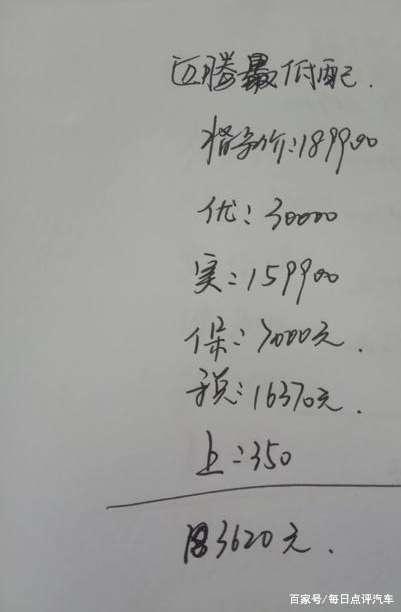 迈腾最低配.
指导价:189900
优:30000
实:159900
保:7000元.
税:16370元.
上:350
183620元.
百家号/每日点评汽车